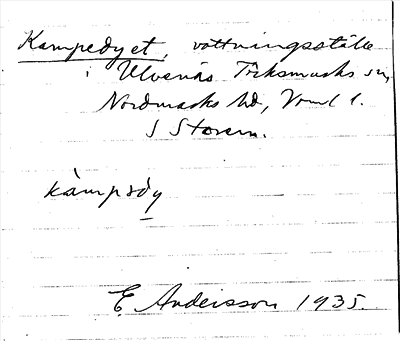 Kampedyet, vattningsställe
i Ulvenäs Töcksmarks sn,
Nordmarks hd, Vrml l.
S Storön.
kàmpədy
E. Andersson 1935.